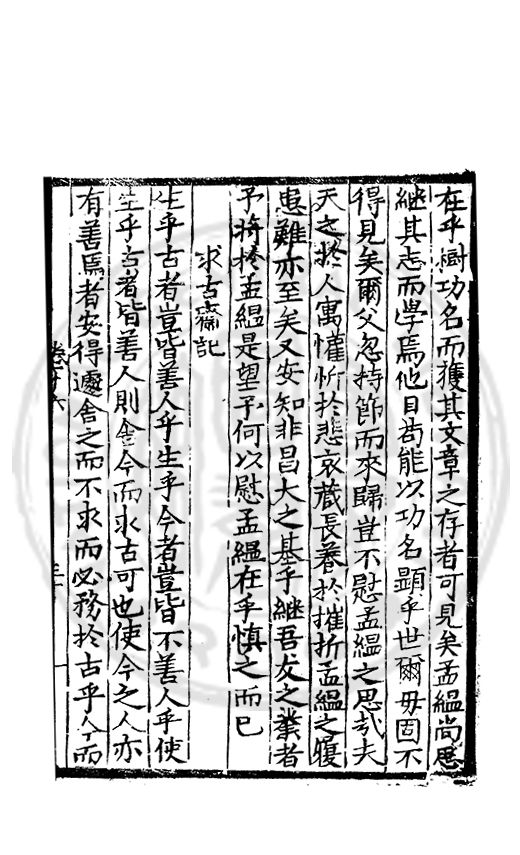 在乎樹功名而獲其文章之存者可見矣孟縕尚思
継其志而學焉他日苟能以功名顯乎世爾毋固不
得見矣爾父忽持節而來歸豈不慰孟縕之思㢤夫
天之於人寓懽忻於悲哀蔵長養於摧折孟縕之
患難亦至矣又安知非昌大之基乎継吾友之業者
予將於孟縕是望予何以慰孟縕在乎慎之而已
求古齋記
生乎古者豈皆善人乎生乎今者豈皆不善人乎使
生乎古者皆善人則舎今而求古可也使今之人亦
有善焉者安得遽舍之而不求而必務於古乎今而